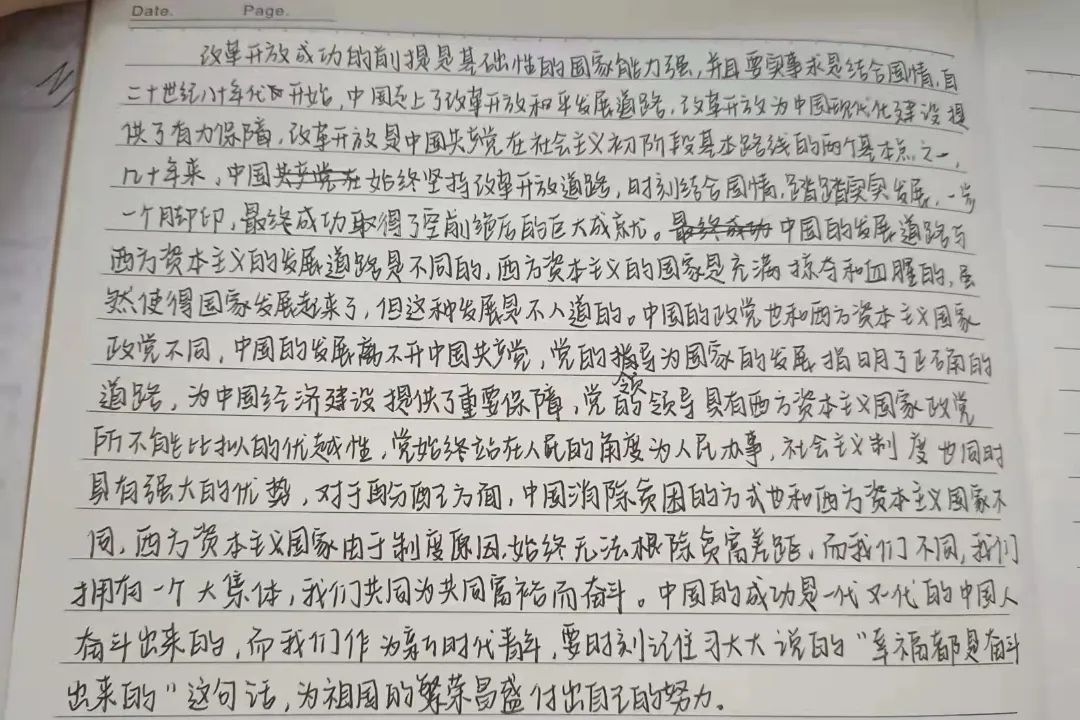 Date. Page.
改革开放成功的前提是基础性的国家能力强,并且要实事求是结合国情,自
二十世纪八十年代开始,中国走上了改革开放和平发展道路,改革开放为中国现代化建设提
供了有力保障,改革开放是中国共产党在社会主义初阶段基本路线的两个基本点之一,
几十年来,中国共产党在始终坚持改革开放道路,时刻结合国情,踏踏实实发展,一步
一个脚印,最终成功取得了空前绝后的巨大成就。最终成功中国的发展道路与
西方资本主义的发展道路是不同的,西方资本主义的国家是充满掠夺和血腥的,虽
然使得国家发展起来了,但这种发展是不人道的。中国的政党也和西方资本主义国家
政党不同,中国的发展离不开中国共产党,党的领导为国家的发展指明了正确的
道路,为中国经济建设提供了重要保障,党的领导具有西方资本主义国家政党
所不能比拟的优越性,党始终站在人民的角度为人民办事,社会主义制度也同时
具有强大的优势,对于再分配方面,中国消除贫困的方式也和西方资本主义国家不
同,西方资本主义国家由于制度原因始终无法根除贫富差距,而我们不同,我们
拥有一个大集体,我们共同为共同富裕而奋斗。中国的成功是一代又一代的中国人
奋斗出来的,而我们作为新时代青年,要时刻记住习大大说的"幸福都是奋斗
出来的"这句话,为祖国的繁荣昌盛付出自己的努力。